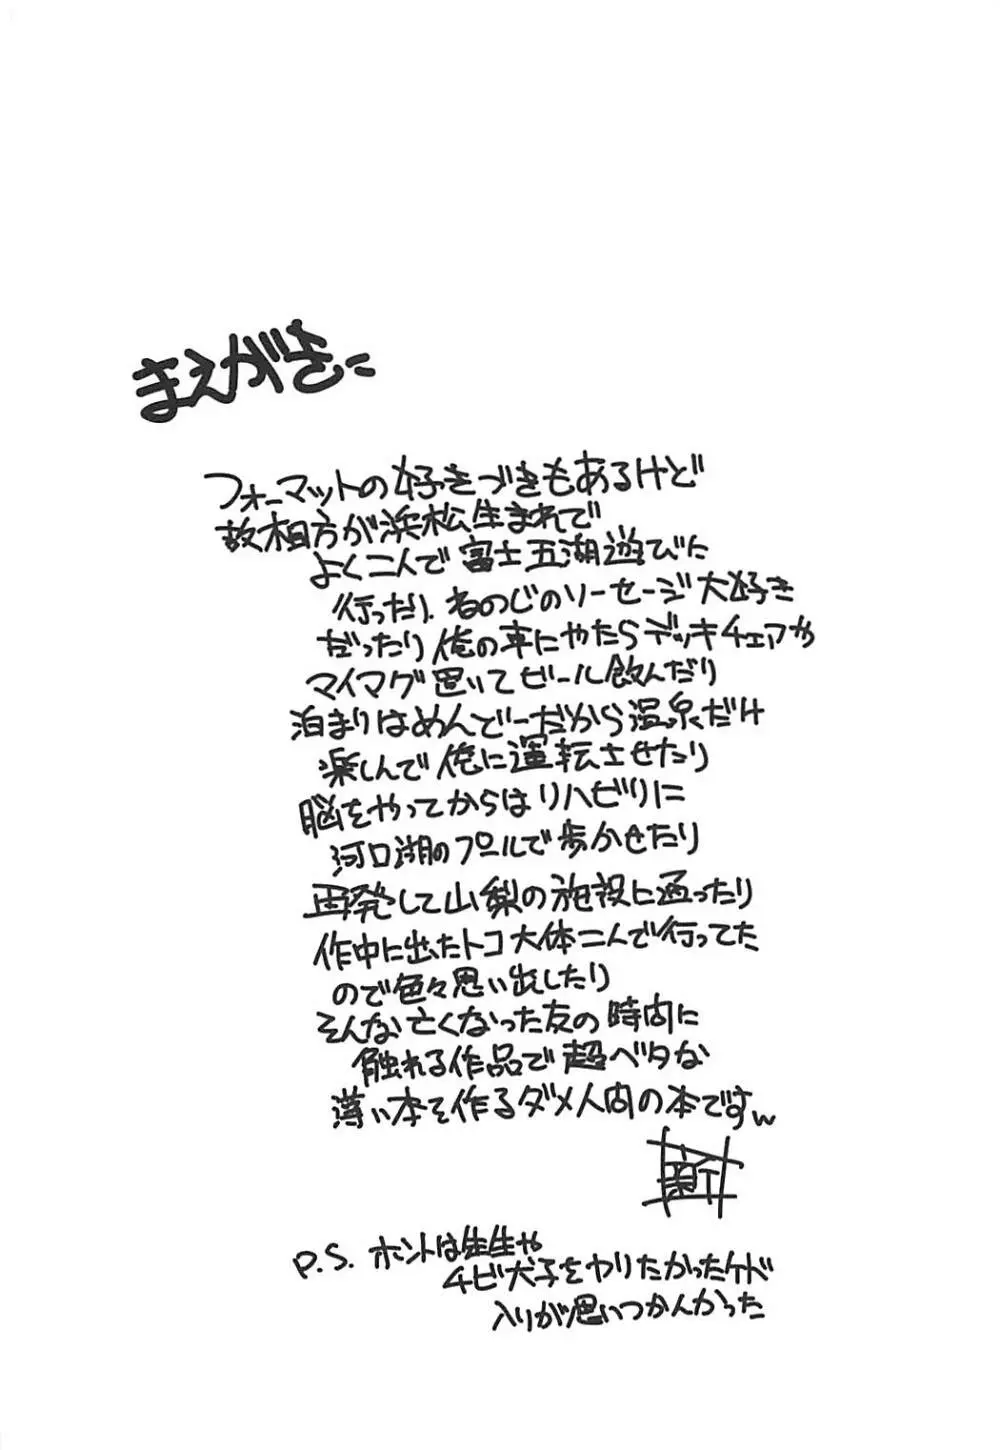 まえがきに
フォーマットの好きづきもあるけど
故相方が浜松生まれで
よく二人で富士五湖遊びに
行ったり、ねのじのソーセージ大好き
だったり俺の車にやたらデッキチェアか
マイマグ置いてビール飲んだり
泊まりはめんでーだから温泉だけ
楽しんで俺に運転させたり
脳をやってからはリハビリに
河口湖のプールで歩かせたり
再発して山梨の施設に通ったり
作中に出たトコ大体二人で行ってた
ので色々思い出したり
そんな亡くなった友の時間に
触れる作品で超ベタな
薄い本を作るダメ人間の本ですw
P.S. ホントは先生や
チビ犬子をヤリたかったケド
入りが思いつかんかった